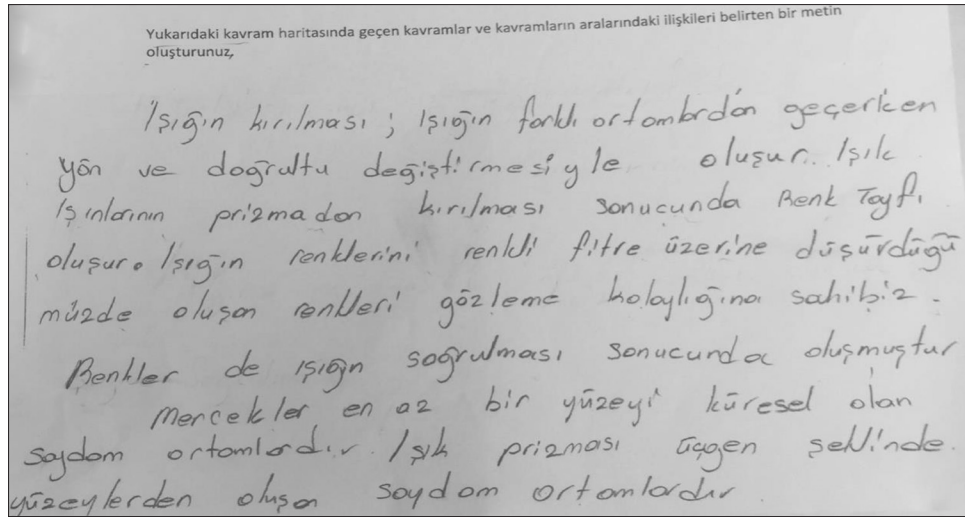 Yukarıdaki kavram haritasında geçen kavramlar ve kavramların aralarındaki ilişkileri belirten bir metin
oluşturunuz,
Işığın kırılması; ışığın farklı ortamlardan geçerken
yön ve doğrultu değiştirmesiyle oluşur. Işık
Işınlarının prizmadan kırılması sonucunda Renk Tayfı
oluşur. Işığın renklerini renkli fitre üzerine düşürdüğü
müzde oluşan renkleri gözleme kolaylığına sahibiz.
Renkler de ışığın soğrulması sonucunda oluşmuştur
Mercekler en az bir yüzeyi küresel olan
saydam ortamlardır. Işık prizması üçgen şeklinde
yüzeylerden oluşan saydam ortamlardır